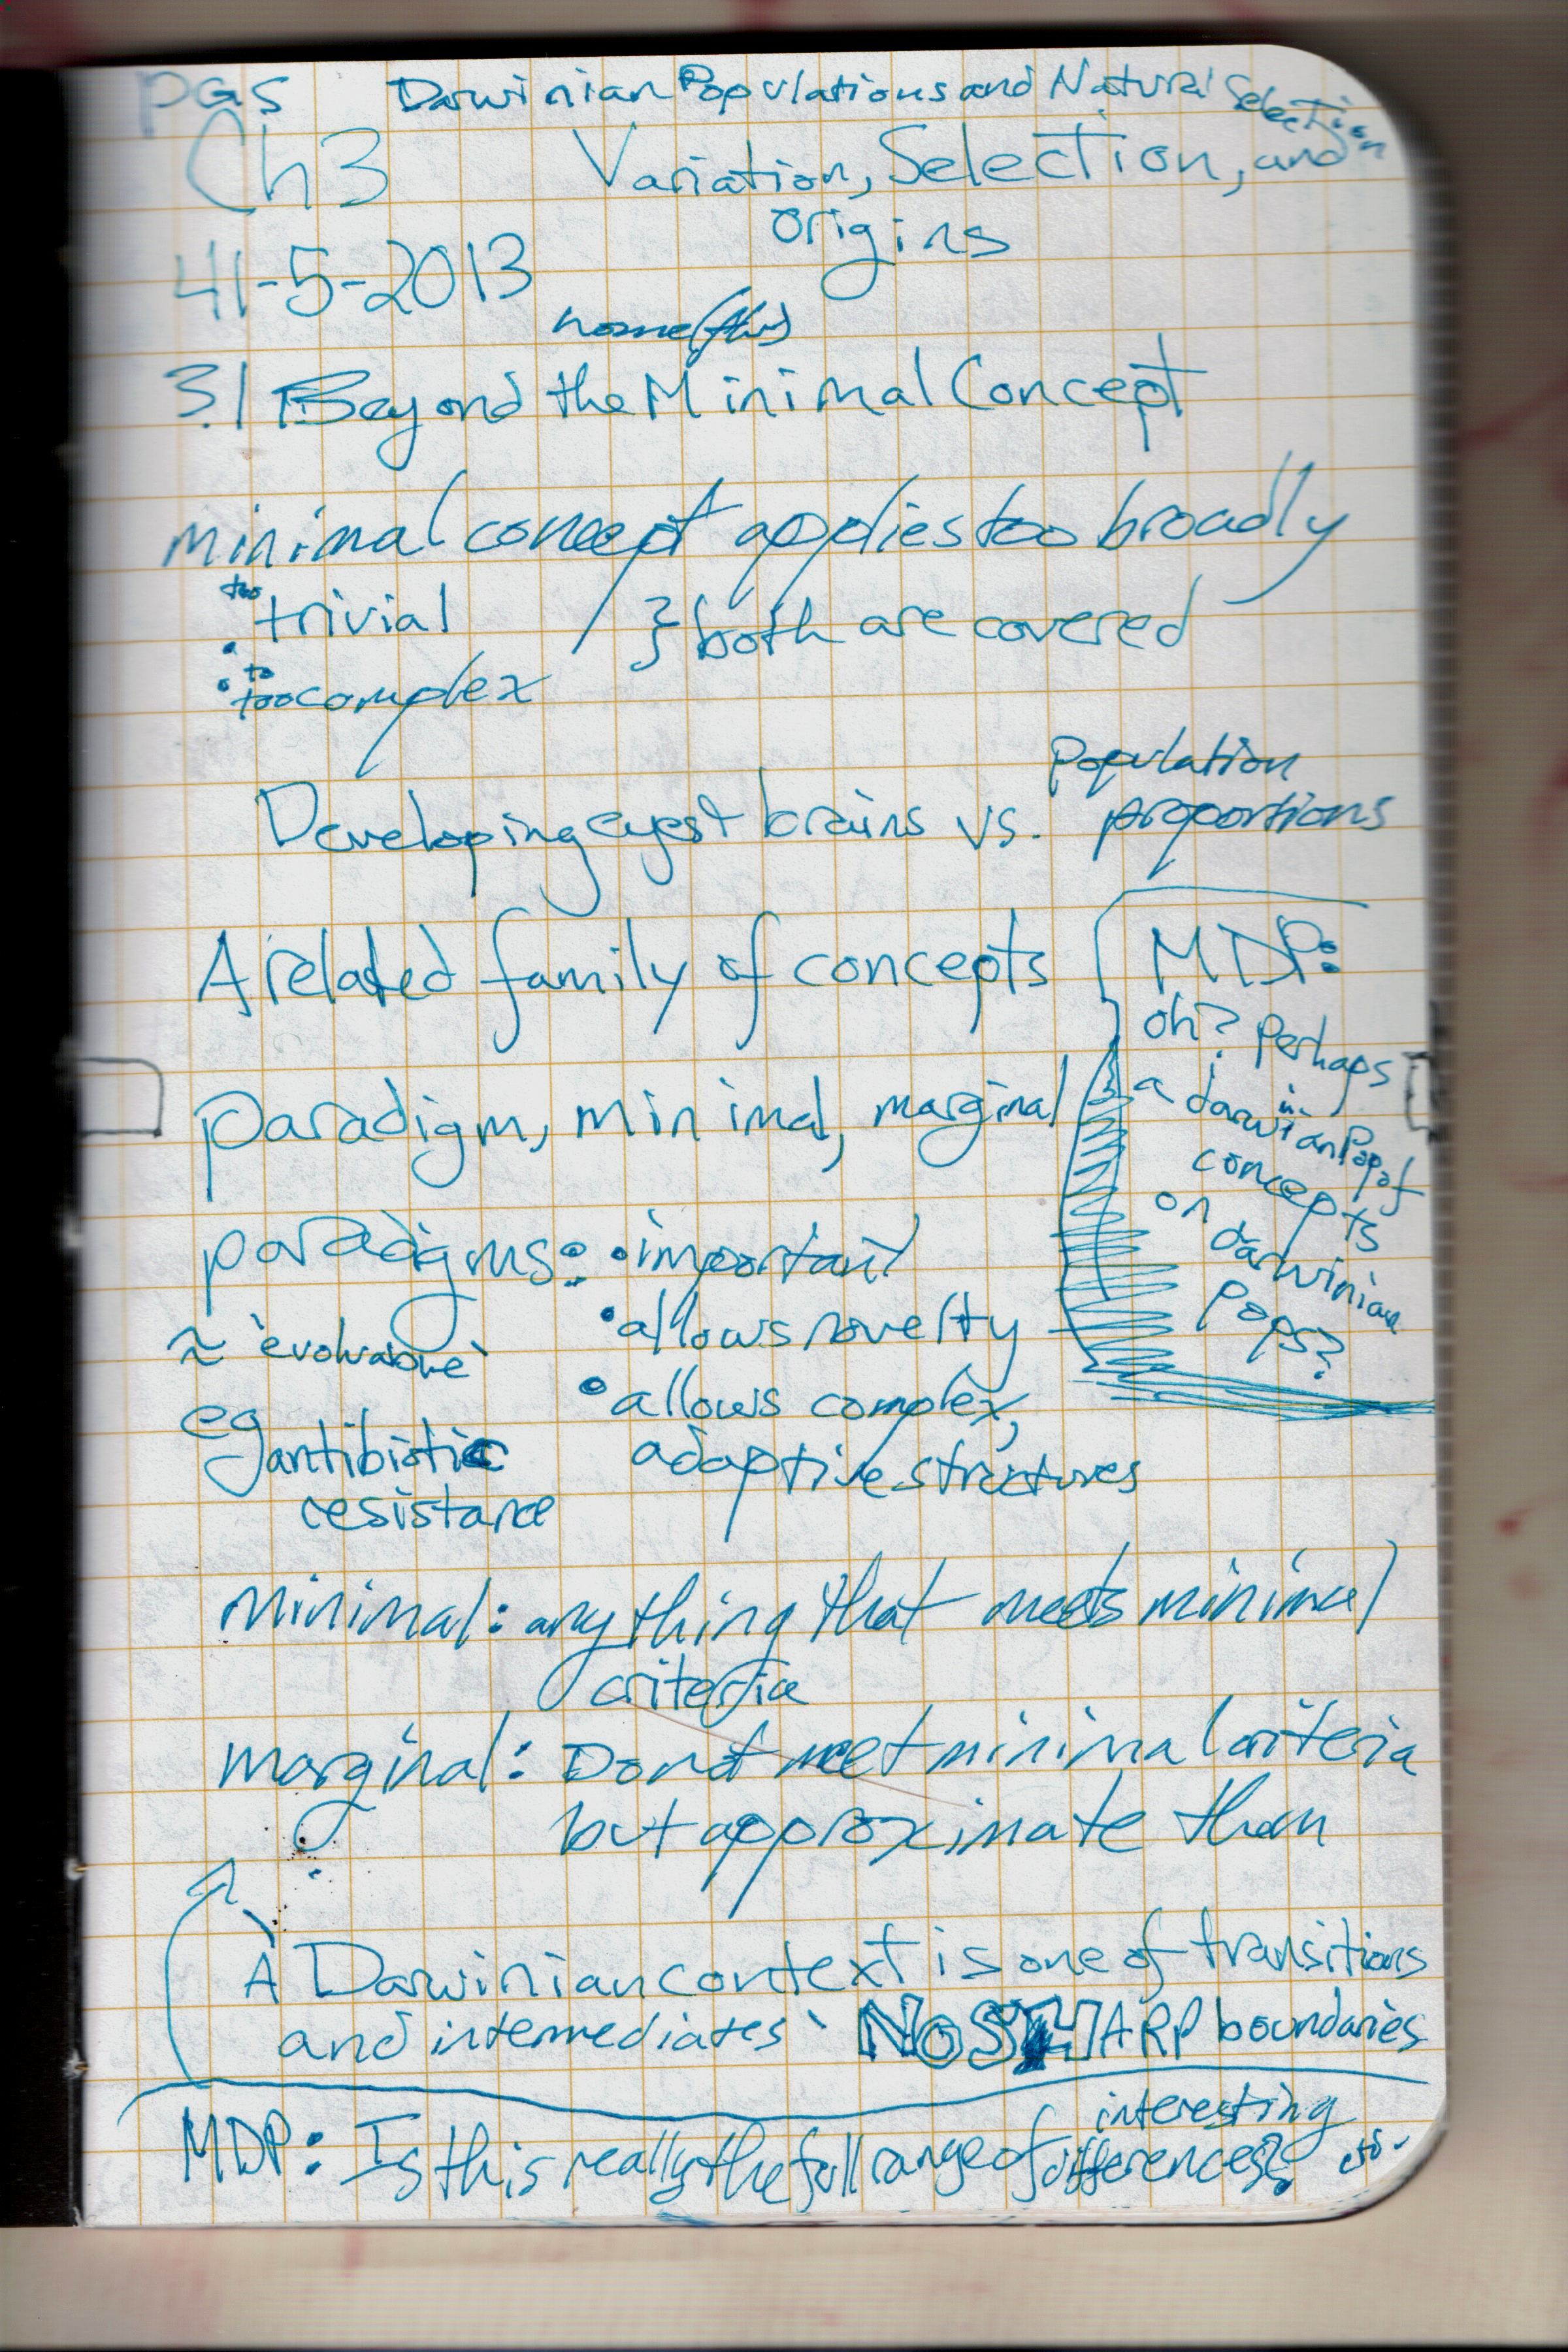 PGS Darwinian Populations and Natural Selection
Ch3 Variation, Selection, and
origins
41-5-2013
home
3.1 Beyond the Minimal Concept
minimal concept applies too broadly
• too trivial
} both are covered
• to
too complex
Developing eyes + brains vs. population
proportions
A related family of concepts
MDP:
oh? perhaps
a darwinian Pop of
concepts
on darwinian
pops?
paradigm, minimal, marginal
paradigms: • important
• allows novelty
≈ 'evolvable'
• allows complex,
adaptive structures
eg antibiotic
resistance
minimal: anything that meets minimal
criteria
marginal: Do not meet minimal criteria
but approximate them
'A Darwinian context is one of transitions
and intermediates' NO SHARP boundaries
MDP: Is this really the full range of interesting differences?